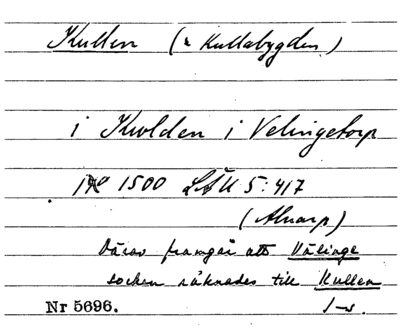 Kullen (& Kullabygden)
i Kwlden i Velingetorp
1500 LÄU 5:417
(Alnarp)
Därav framgår att Välinge
socken räknades till Kullen
Nr 5696.